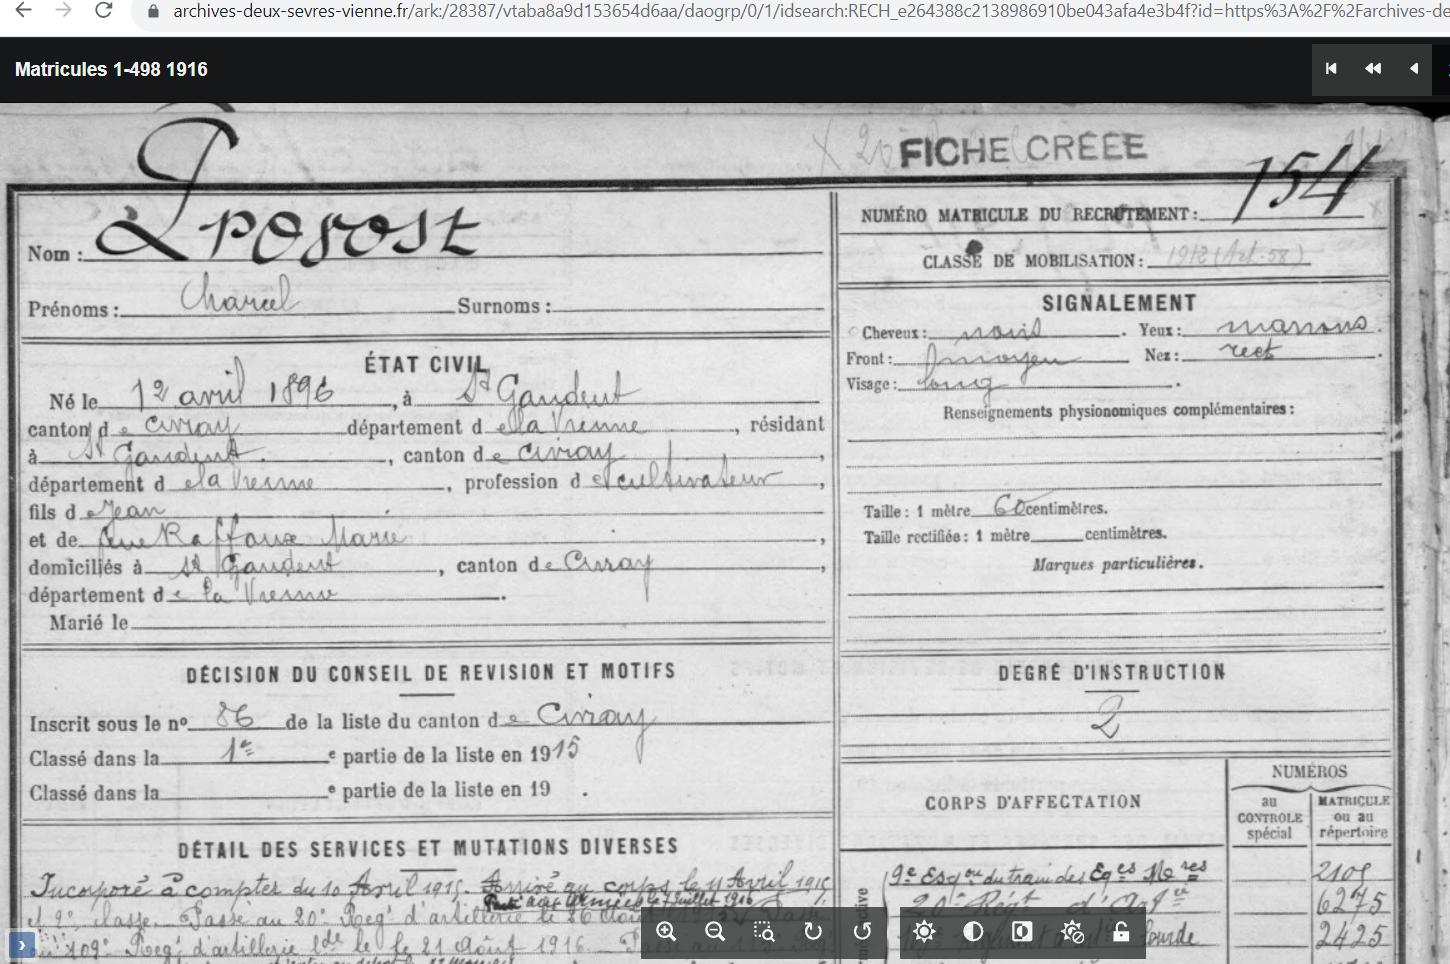 archives-deux-sevres-vienne.fr/ark:/28387/vtaba8a9d153654d6aa/daogrp/0/1/idsearch:RECH_e264388c2138986910be043afa4e3b4f?id=https%3A%2F%2Farchives-de
Matricules 1-498 1916
FICHE CRÉÉE
154
NUMÉRO MATRICULE DU RECRUTEMENT :
Nom : Provost
CLASSE DE MOBILISATION : 1912 (Art. 58)
Prénoms : Surnoms :
SIGNALEMENT
Cheveux : noirs . Yeux : marrons .
Front : moyen Nez : rect .
Visage : long .
ÉTAT CIVIL
Né le 12 avril 1896 , à St Gaudent
canton de Civray département de la Vienne , résidant
à St Gaudent , canton de Civray ,
département de la Vienne , profession de cultivateur ,
fils de Jean
et de Marie ,
domiciliés à St Gaudent , canton de Civray ,
département de la Vienne .
Marié le
Renseignements physionomiques complémentaires :
Taille : 1 mètre 60 centimètres.
Taille rectifiée : 1 mètre centimètres.
Marques particulières.
DÉCISION DU CONSEIL DE REVISION ET MOTIFS
Inscrit sous le n° 86 de la liste du canton de Civray
Classé dans la 1re e partie de la liste en 1915
Classé dans la e partie de la liste en 19 .
DEGRÉ D'INSTRUCTION
2
CORPS D'AFFECTATION
NUMÉROS
au CONTROLE spécial
MATRICULE ou au répertoire
DÉTAIL DES SERVICES ET MUTATIONS DIVERSES
Incorporé à compter du 10 Avril 1915. Arrivé au corps le 11 Avril 1915
Parti aux Armées le 7 juillet 1916
et 2e classe. Passé au 20e Regt d'artillerie le 26 Août Passé
au 109e Regt d'artillerie lde le 21 Août 1916. Passé au
9e Esqon du train des Eqes Mres 2109
20e Regt d'Artie 6275
lourde 2425